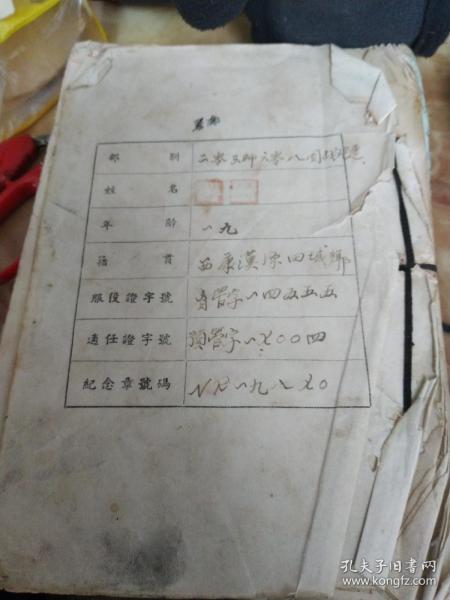 部 別 二零三師六零八團
姓 名
年 齡 一九
籍 貫 西康漢源四城鄉
服役證字號 一四五五五
適任證字號 預管字一七〇〇四
紀念章號碼 一九八七〇
孔夫子旧书网
www.kongfz.com